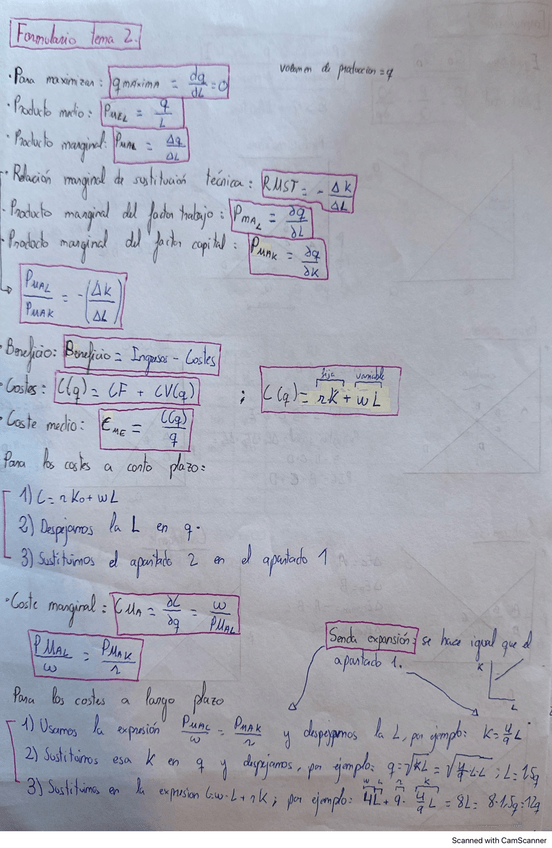 Formulario tema 2.
volumen de produccion = q
· Para maximizar: qmáxima = dq/dL = 0
· Producto medio: PMEL = q/L
· Producto marginal: PMAL = Δq/ΔL
- Relación marginal de sustitución técnica: RMST = - ΔK/ΔL
- Producto marginal del factor trabajo: PMAL = ∂q/∂L
- Producto marginal del factor capital: PMAK = ∂q/∂K
PMAL/PMAK = -(ΔK/ΔL)
· Beneficio: Beneficio = Ingresos - Costes
fijo variable
· Costes: C(q) = CF + CV(q) ; C(q) = rK + wL
· Coste medio: CME = C(q)/q
Para los costes a corto plazo:
1) C = rK0 + wL
2) Despejamos la L en q.
3) Sustituimos el apartado 2 en el apartado 1
· Coste marginal: CMA = ∂C/∂q = w/PMAL
PMAL/w = PMAK/r
Senda expansión: se hace igual que el
apartado 1.
K
L
Para los costes a largo plazo
1) Usamos la expresión PMAL/w = PMAK/r y despejamos la L, por ejemplo: K = 4/9 L
2) Sustituimos esa K en q y despejamos, por ejemplo: q = √KL = √4/9 L·L ; L = 1,5q
w L r K
3) Sustituimos en la expresion C = w·L + rK ; por ejemplo: 4L + 9 · 4/9 L = 8L = 8·1,5q = 12q
Scanned with CamScanner